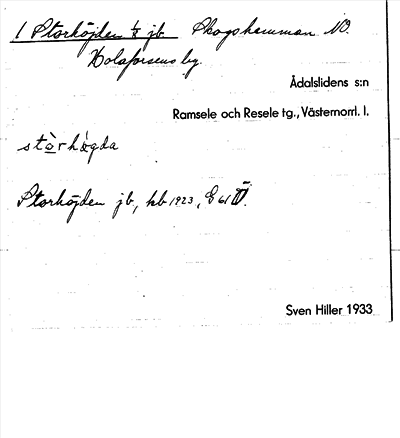 1 Storhöjden 1/8 jb Skogshemman NO.
Holaforsens by.
Ådalslidens s:n
Ramsele och Resele tg., Västernorrl. l.
stòrhǫ̀gda
Storhöjden jb, kb 1923, E 61 IV.
Sven Hiller 1933